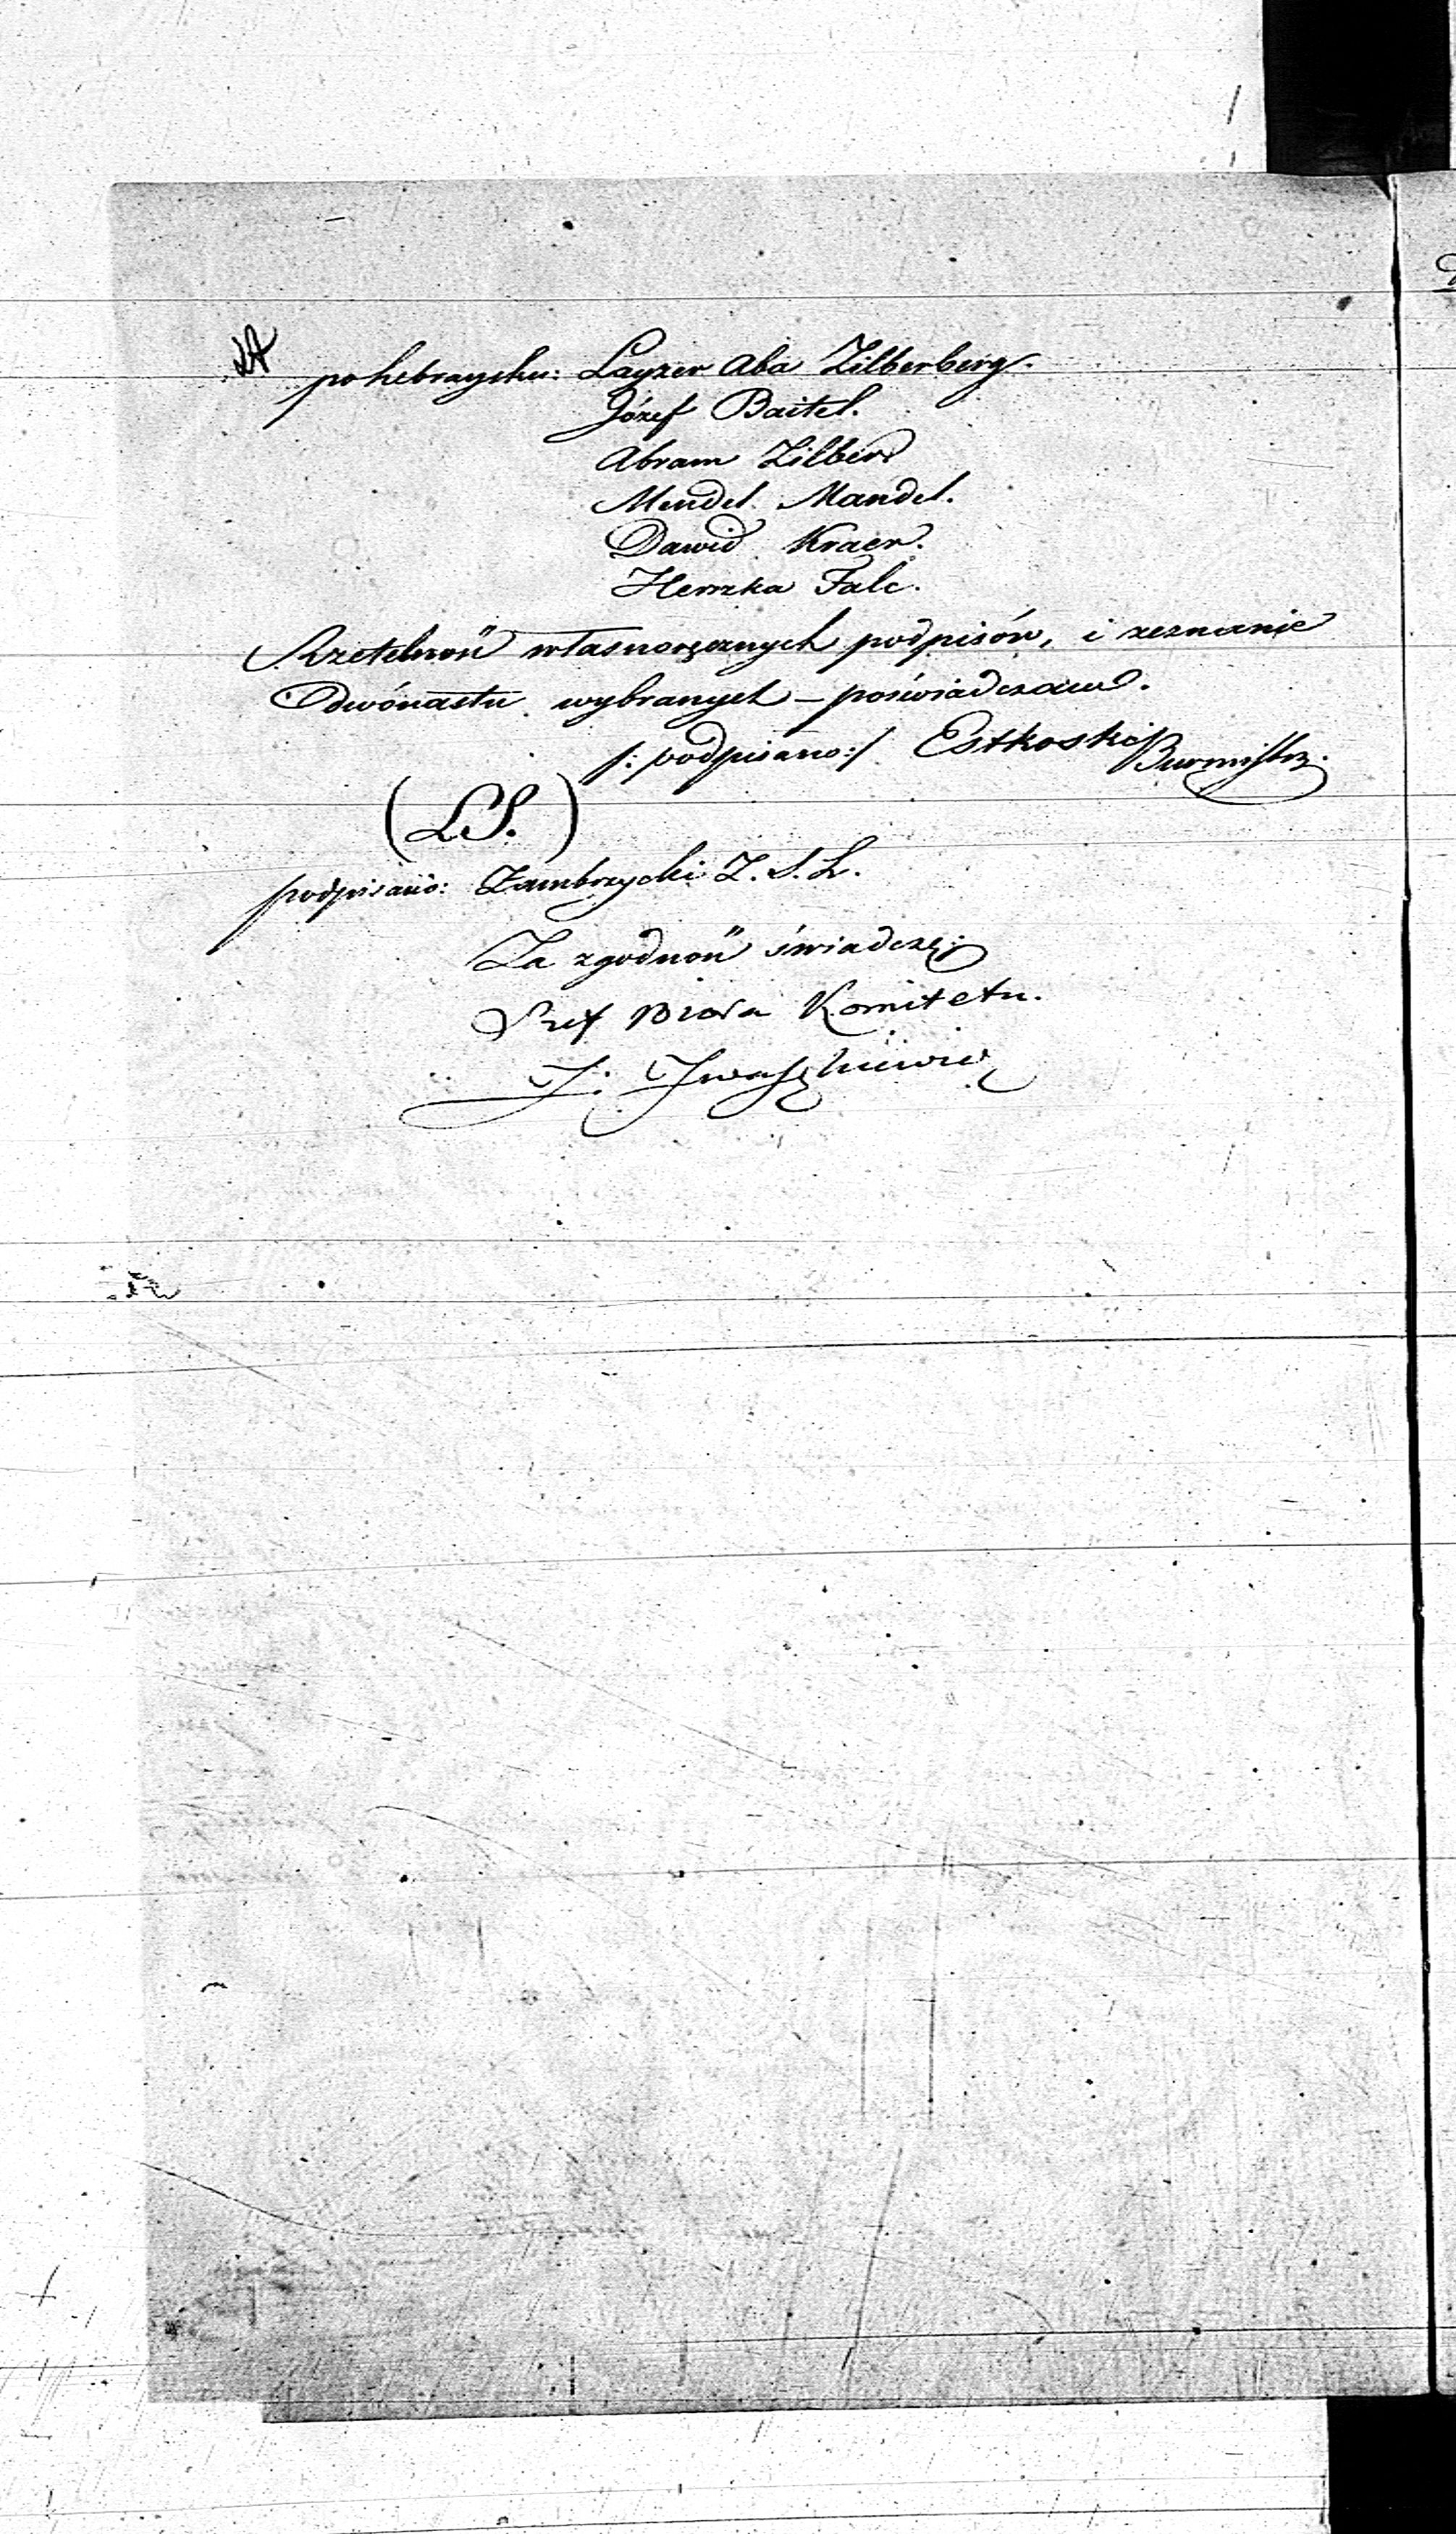 po hebraysku: Layzer Aba Zilberberg.
Józef Baitel.
Abram Zilber
Mendel Mandel.
Dawid Kraer.
Herszka Falc.
Rzetelność własnoręcznych podpisów, i zeznanie
dwónastu wybranych – poświadczam.
/: podpisano :/ Estkoski Burmistrz.
(LS.)
podpisano: Zambrzycki Z. S. L.
Za zgodność świadczę:
Szef Biora Komitetu.
J: Iwaszkiewicz